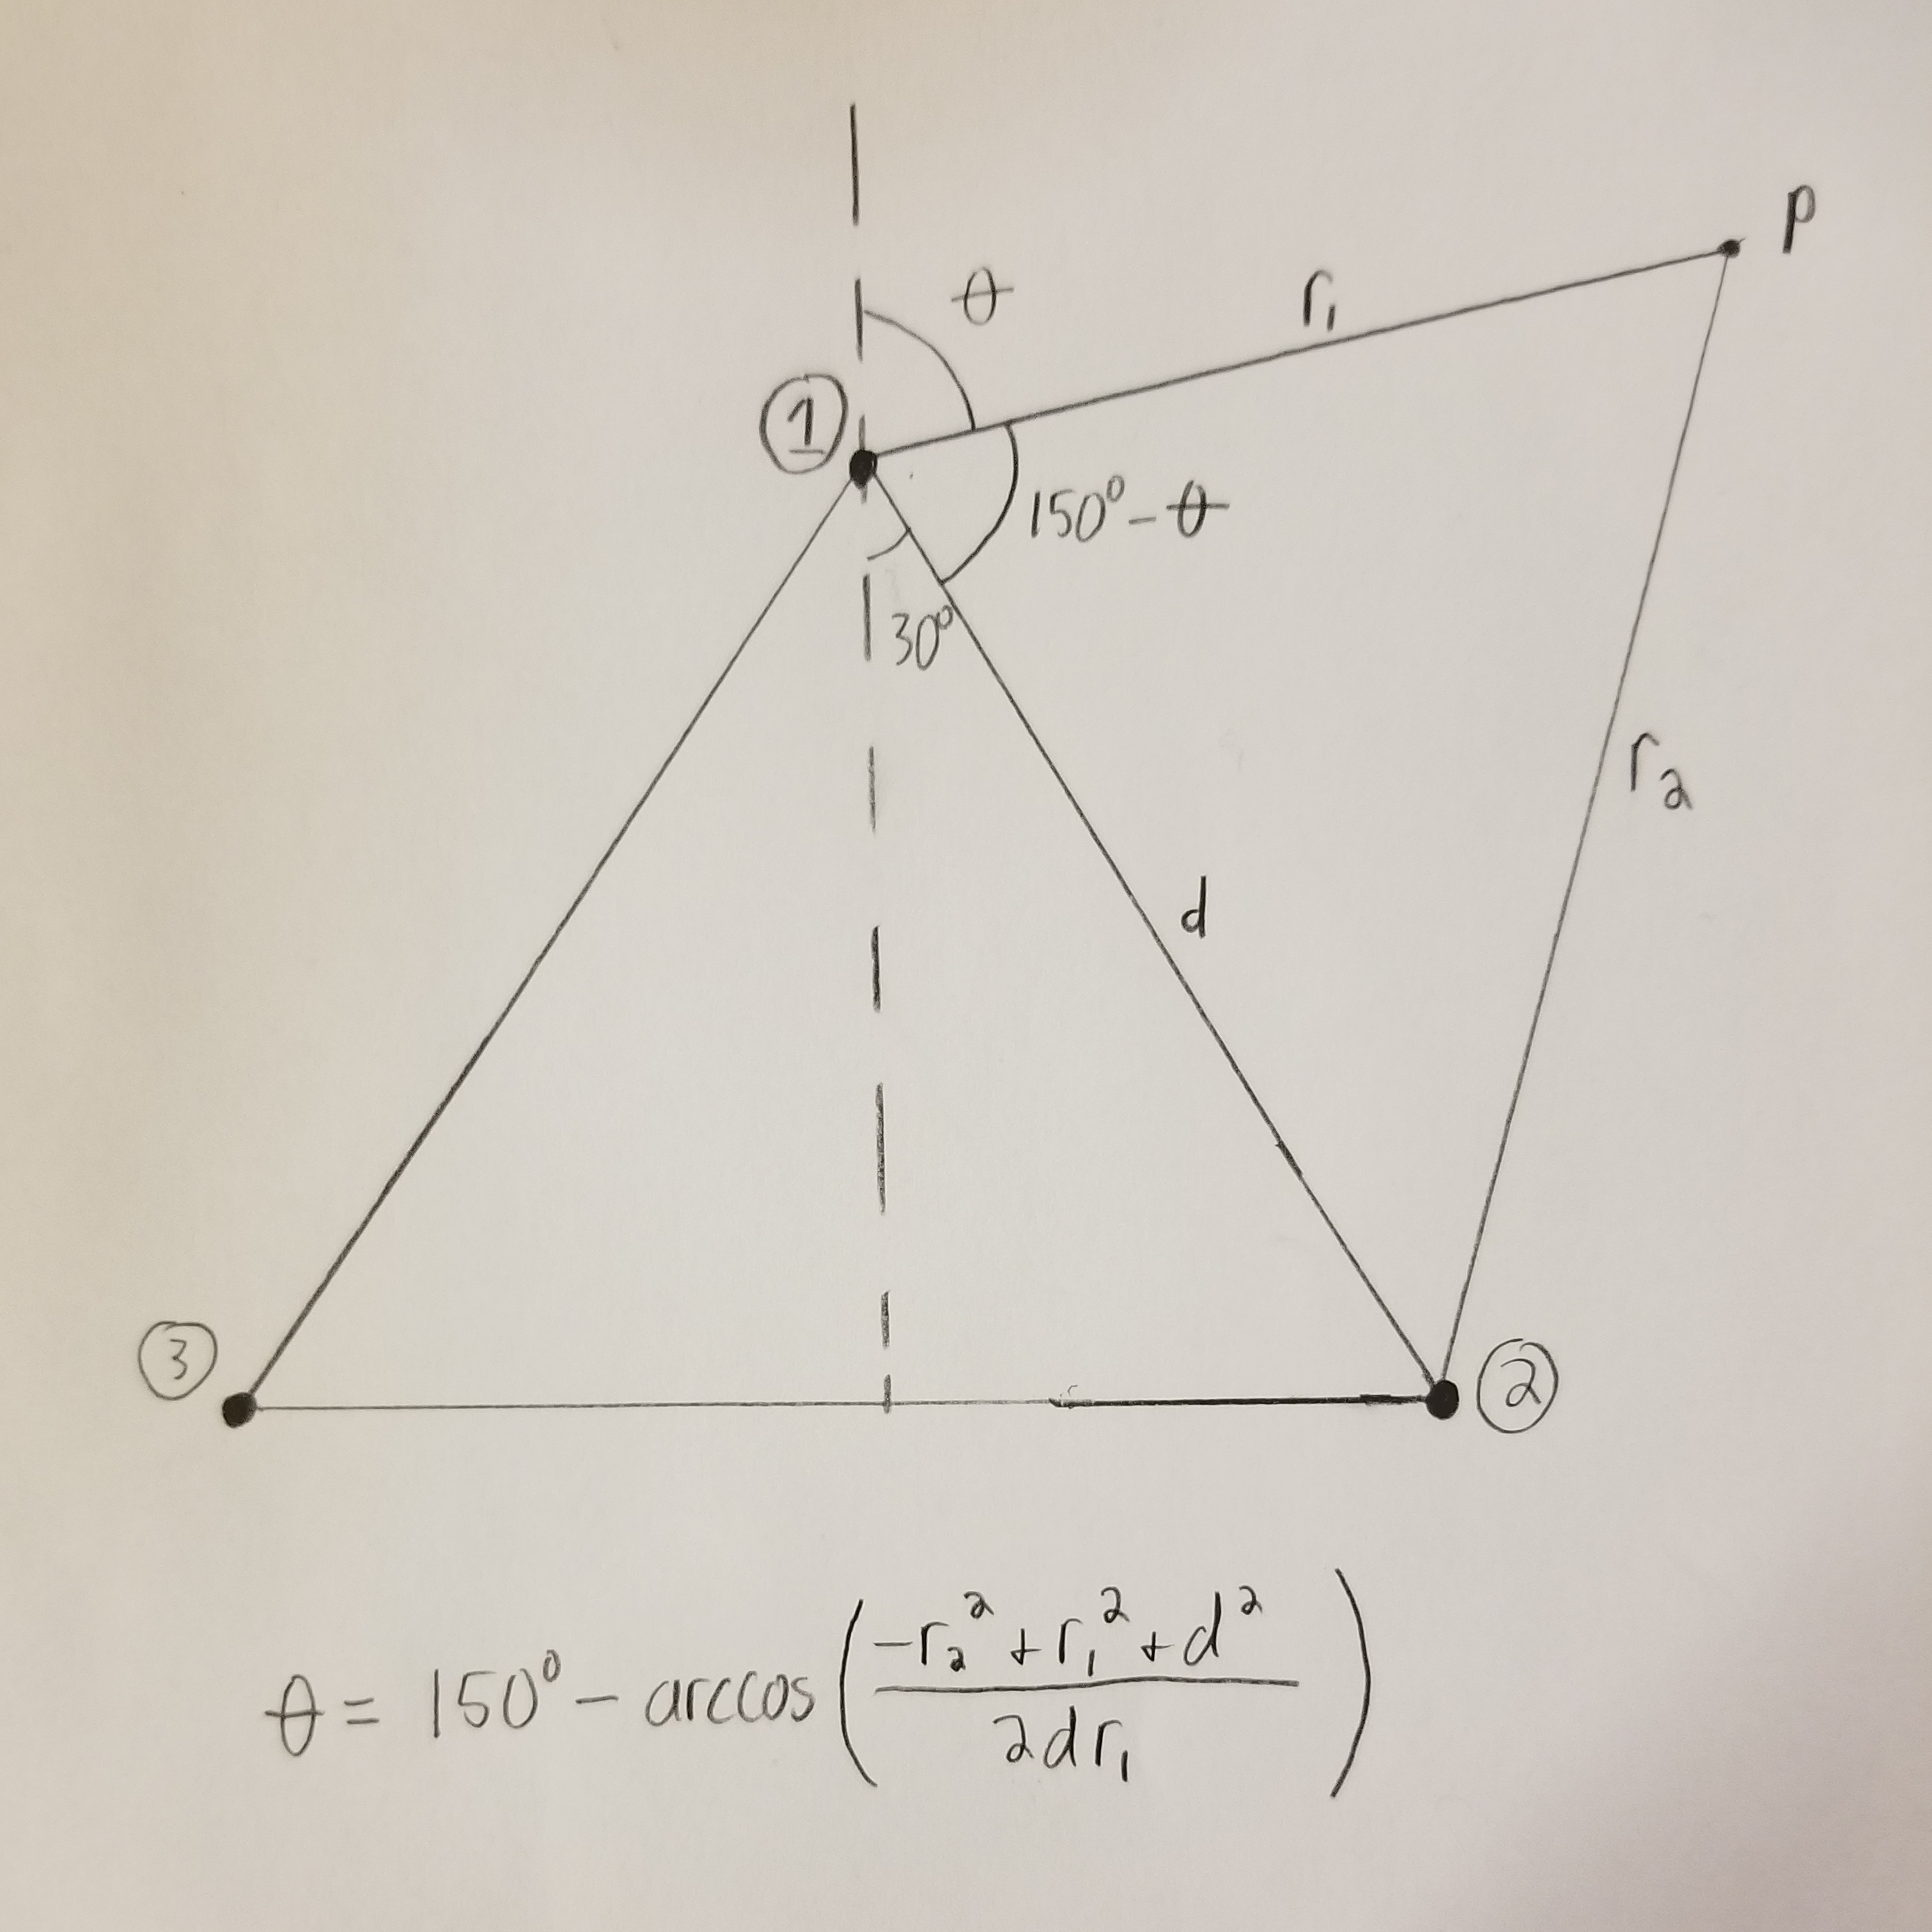 P
θ
r₁
①
150° - θ
30°
r₂
d
③
②
θ = 150° - arccos((-r₂² + r₁² + d²) / (2dr₁))